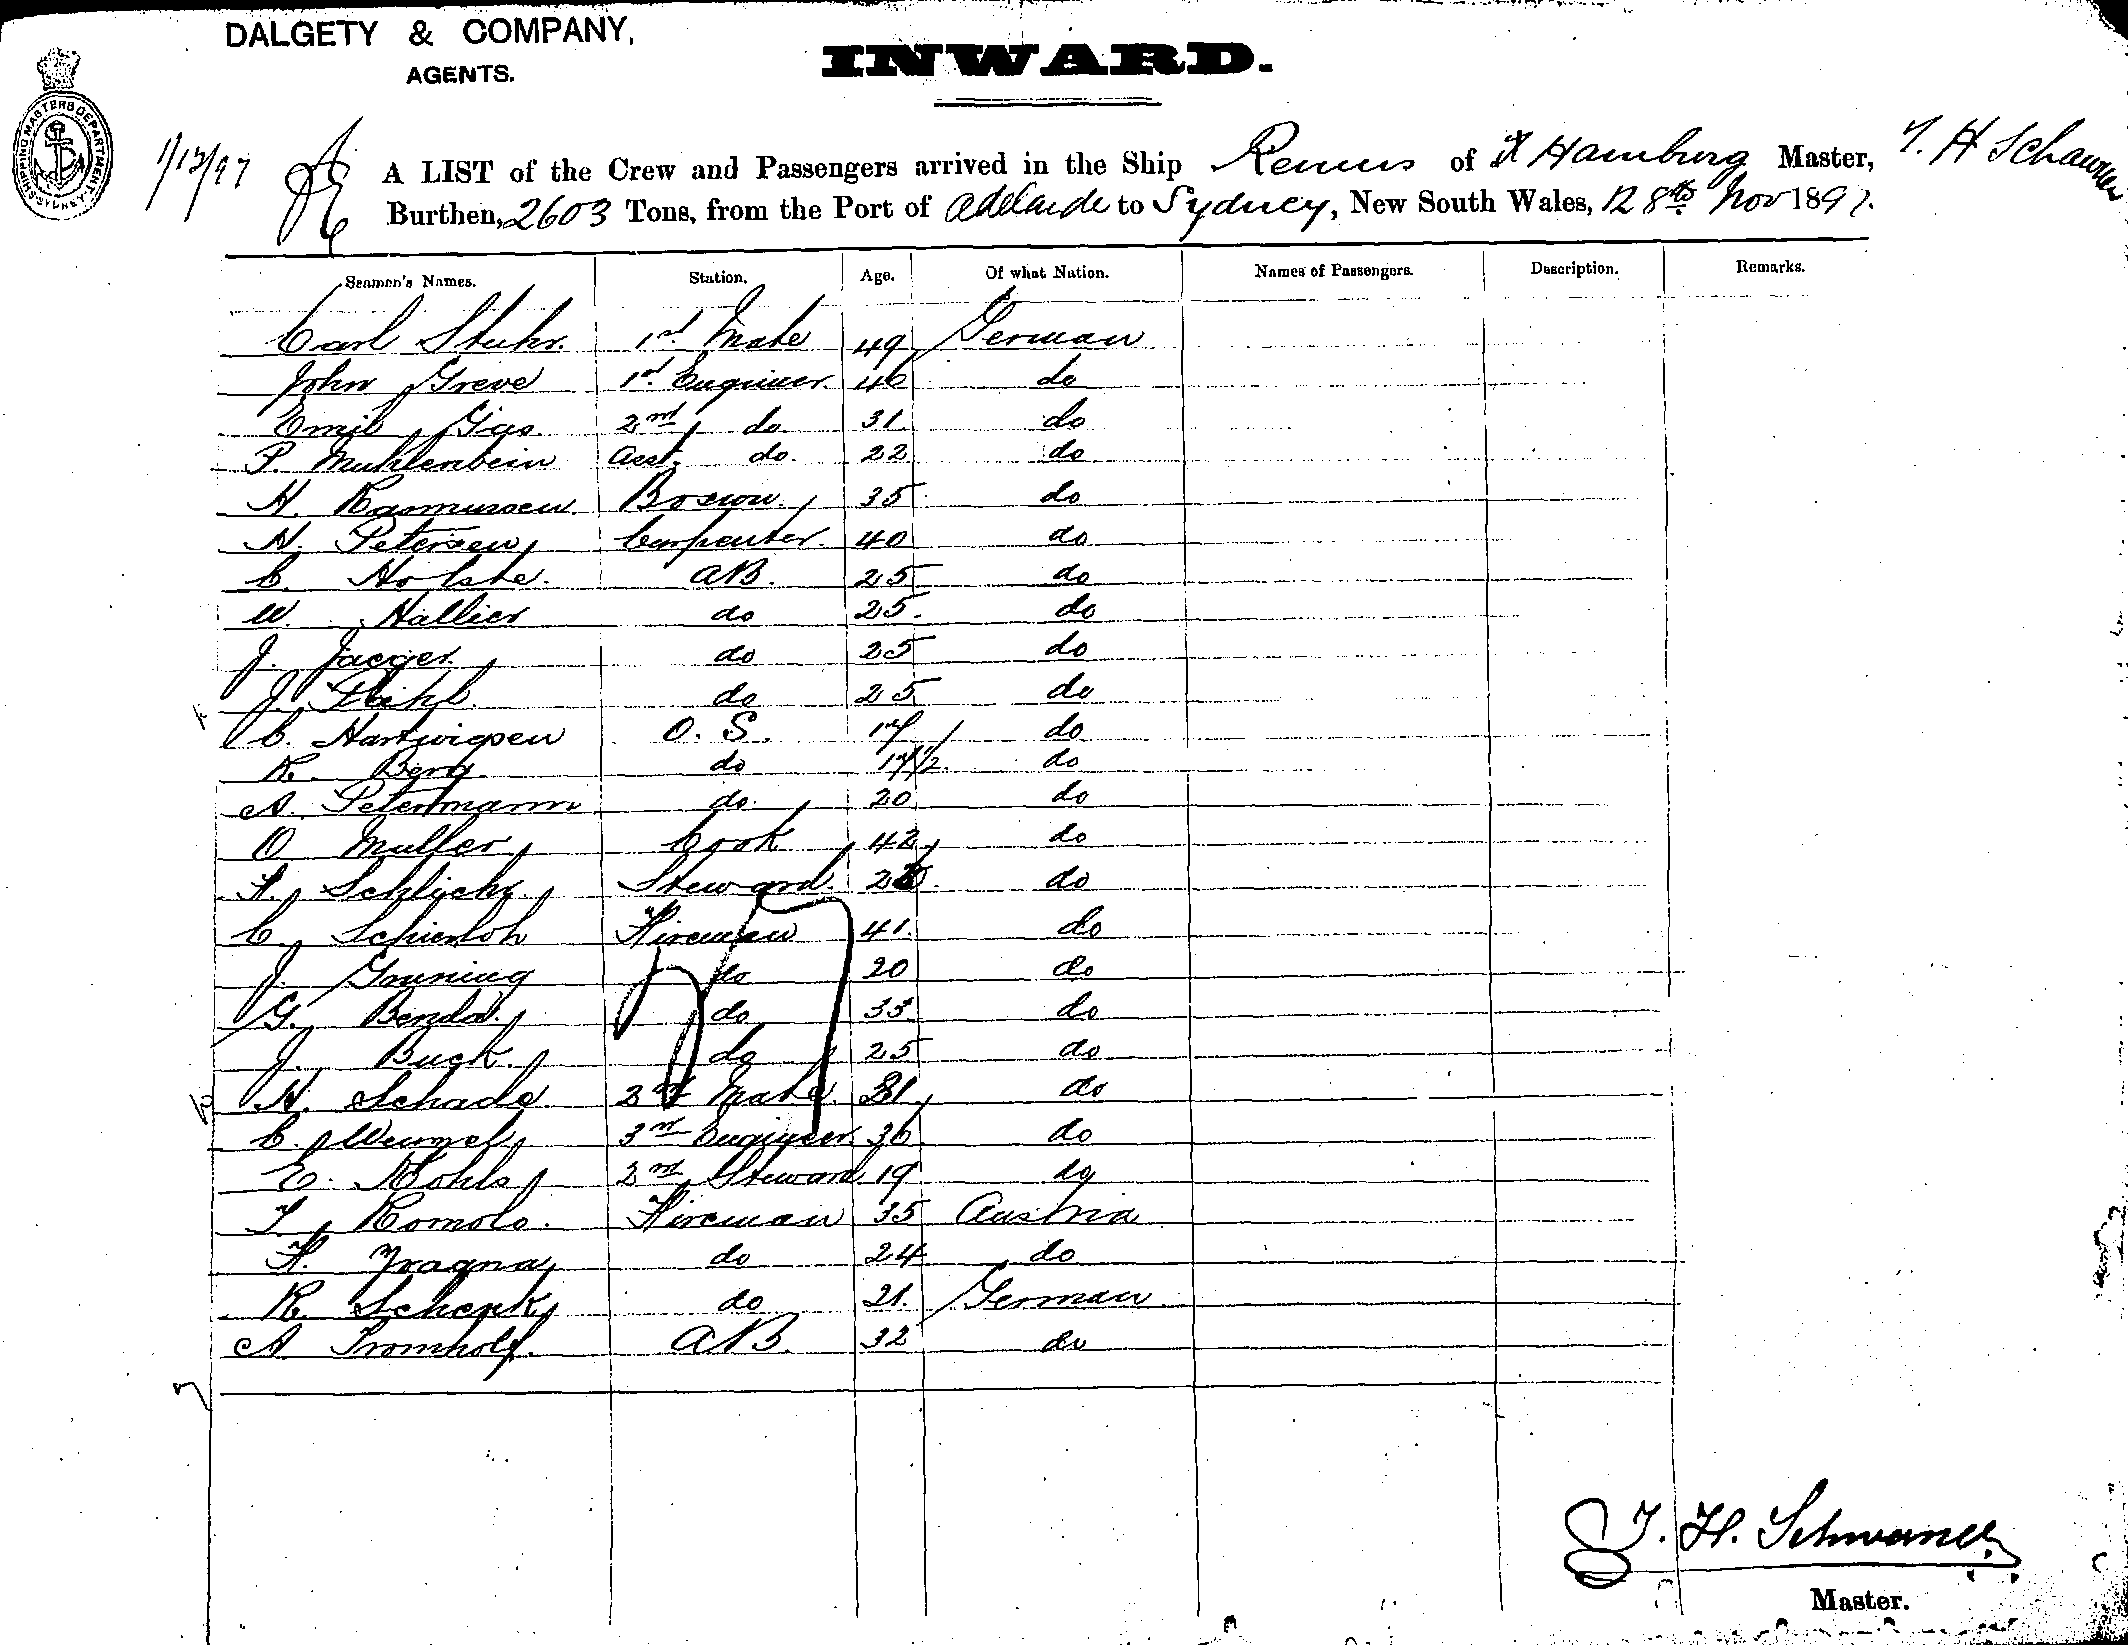 DALGETY & COMPANY,
AGENTS.
INWARD.
SHIPPING MASTERS DEPARTMENT. SYDNEY.
1/12/97
A LIST of the Crew and Passengers arrived in the Ship Remus of Hamburg Master, T. H Schawner
Burthen, 2603 Tons, from the Port of Adelaide to Sydney, New South Wales, 28th Nov 1897.
Seamen's Names. Station. Age. Of what Nation. Names of Passengers. Description. Remarks.
Carl Stuhr. 1st Mate 49 German
John Greve 1st Engineer 46 do
Emil 2nd do 31 do
P. Muhlenbein Asst. do. 22 do
H. Rasmussen Boswn. 35 do
H. Petersen Carpenter. 40 do
C. Holste. AB. 25 do
W. Hallier do 25. do
J. Jaeger do 25 do
J. do 25 do
C. Hartwigsen O. S. 17 do
K. Berg do 17 1/2 do
A. Petermann do. 20 do
O Muller Cook 42 do
F. Schlicht Steward. do
C. Schierloh Fireman 41. do
J. Gruning do 20 do
G. Benda. do 33 do
J. Buck. do 25 do
H. Schade 2nd Mate. 31 do
C. Wenzel 3rd Engineer 36 do
E. Kohls 2nd Steward 19 do
T. Romolo. Fireman 35 Austria
F. Fragna do 24 do
R. Schenk do 21. German
A Tromholf. AB. 32 do
T. H. Schwaner
Master.